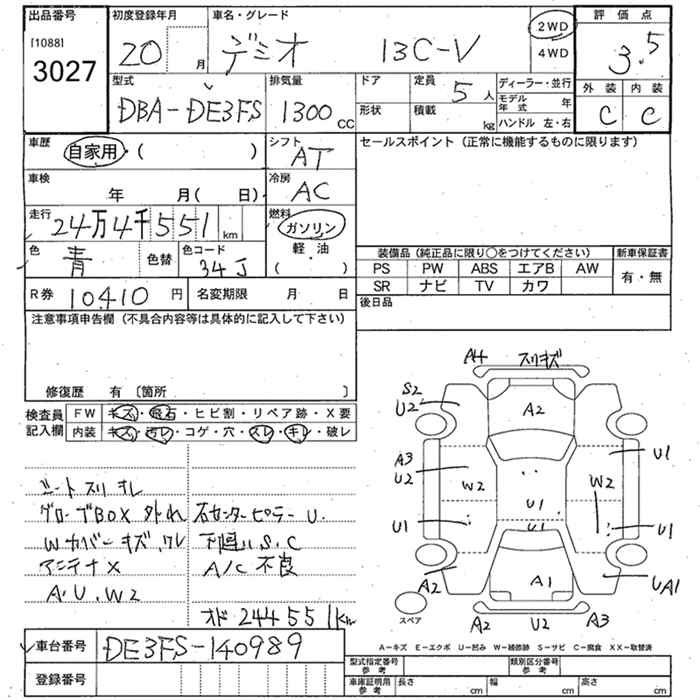 出品番号 初度登録年月 車名・グレード 2WD 評価点
[1088] 20 月 デミオ 13C-V 4WD 3.5
3027
型式 排気量 ドア 定員 5人 ディーラー・並行 外装 内装
DBA-DE3FS 1300cc 形状 積載 kg モデル年式 年 C C
ハンドル 左・右
車歴 自家用 ( ) シフト AT セールスポイント (正常に機能するものに限ります)
車検 年 月( 日) 冷房 AC
走行 24万4千551km 燃料 ガソリン
色 青 色替 色コード 34J 軽油 ( )
装備品 (純正品に限り○をつけてください) 新車保証書
PS PW ABS エアB AW 有・無
SR ナビ TV カワ
R券 10410円 名変期限 月 日 後日品
注意事項申告欄 (不具合内容等は具体的に記入して下さい)
修復歴 有 〔箇所 〕
検査員記入欄 FW キズ・飛石・ヒビ割・リペア跡・X要
内装 キズ・汚レ・コゲ・穴・スレ・キレ・破レ
シートスリキレ
グローブBOX 外れ 右センターピラーU.
Wカバーキズ.ワレ 下廻りS.C
アンテナX A/C不良
A.U.W2
オド244551km
車台番号 DE3FS-140989
登録番号
A4 スリキズ
S2
U2 A2
A3
U2 W2 W2 U1
U1 U1 U1 U1
A2 A1 UA1
スペア A2 U2 A3
A-キズ E-エクボ U-凹み W-補修跡 S-サビ C-腐食 XX-取替済
型式指定番号 参考 類別区分番号 参考
車庫証明用 参考 長さ cm 幅 cm 高さ cm